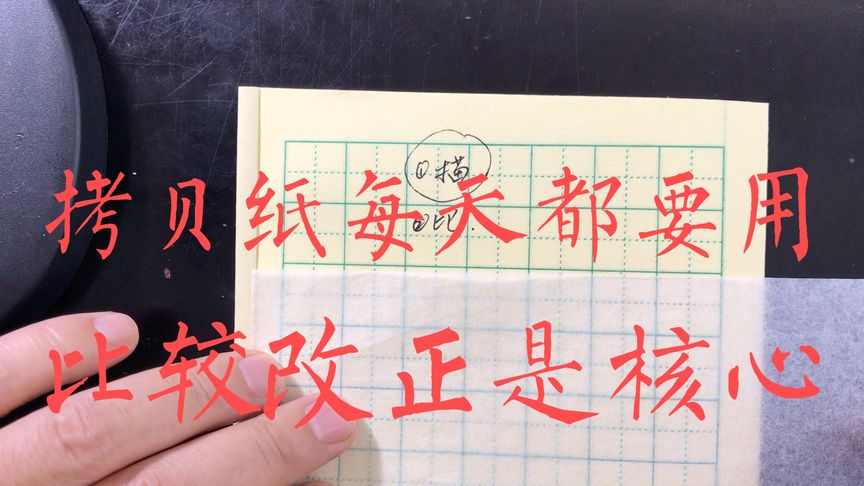 ①描
②比.
拷贝纸每天都要用
比较改正是核心